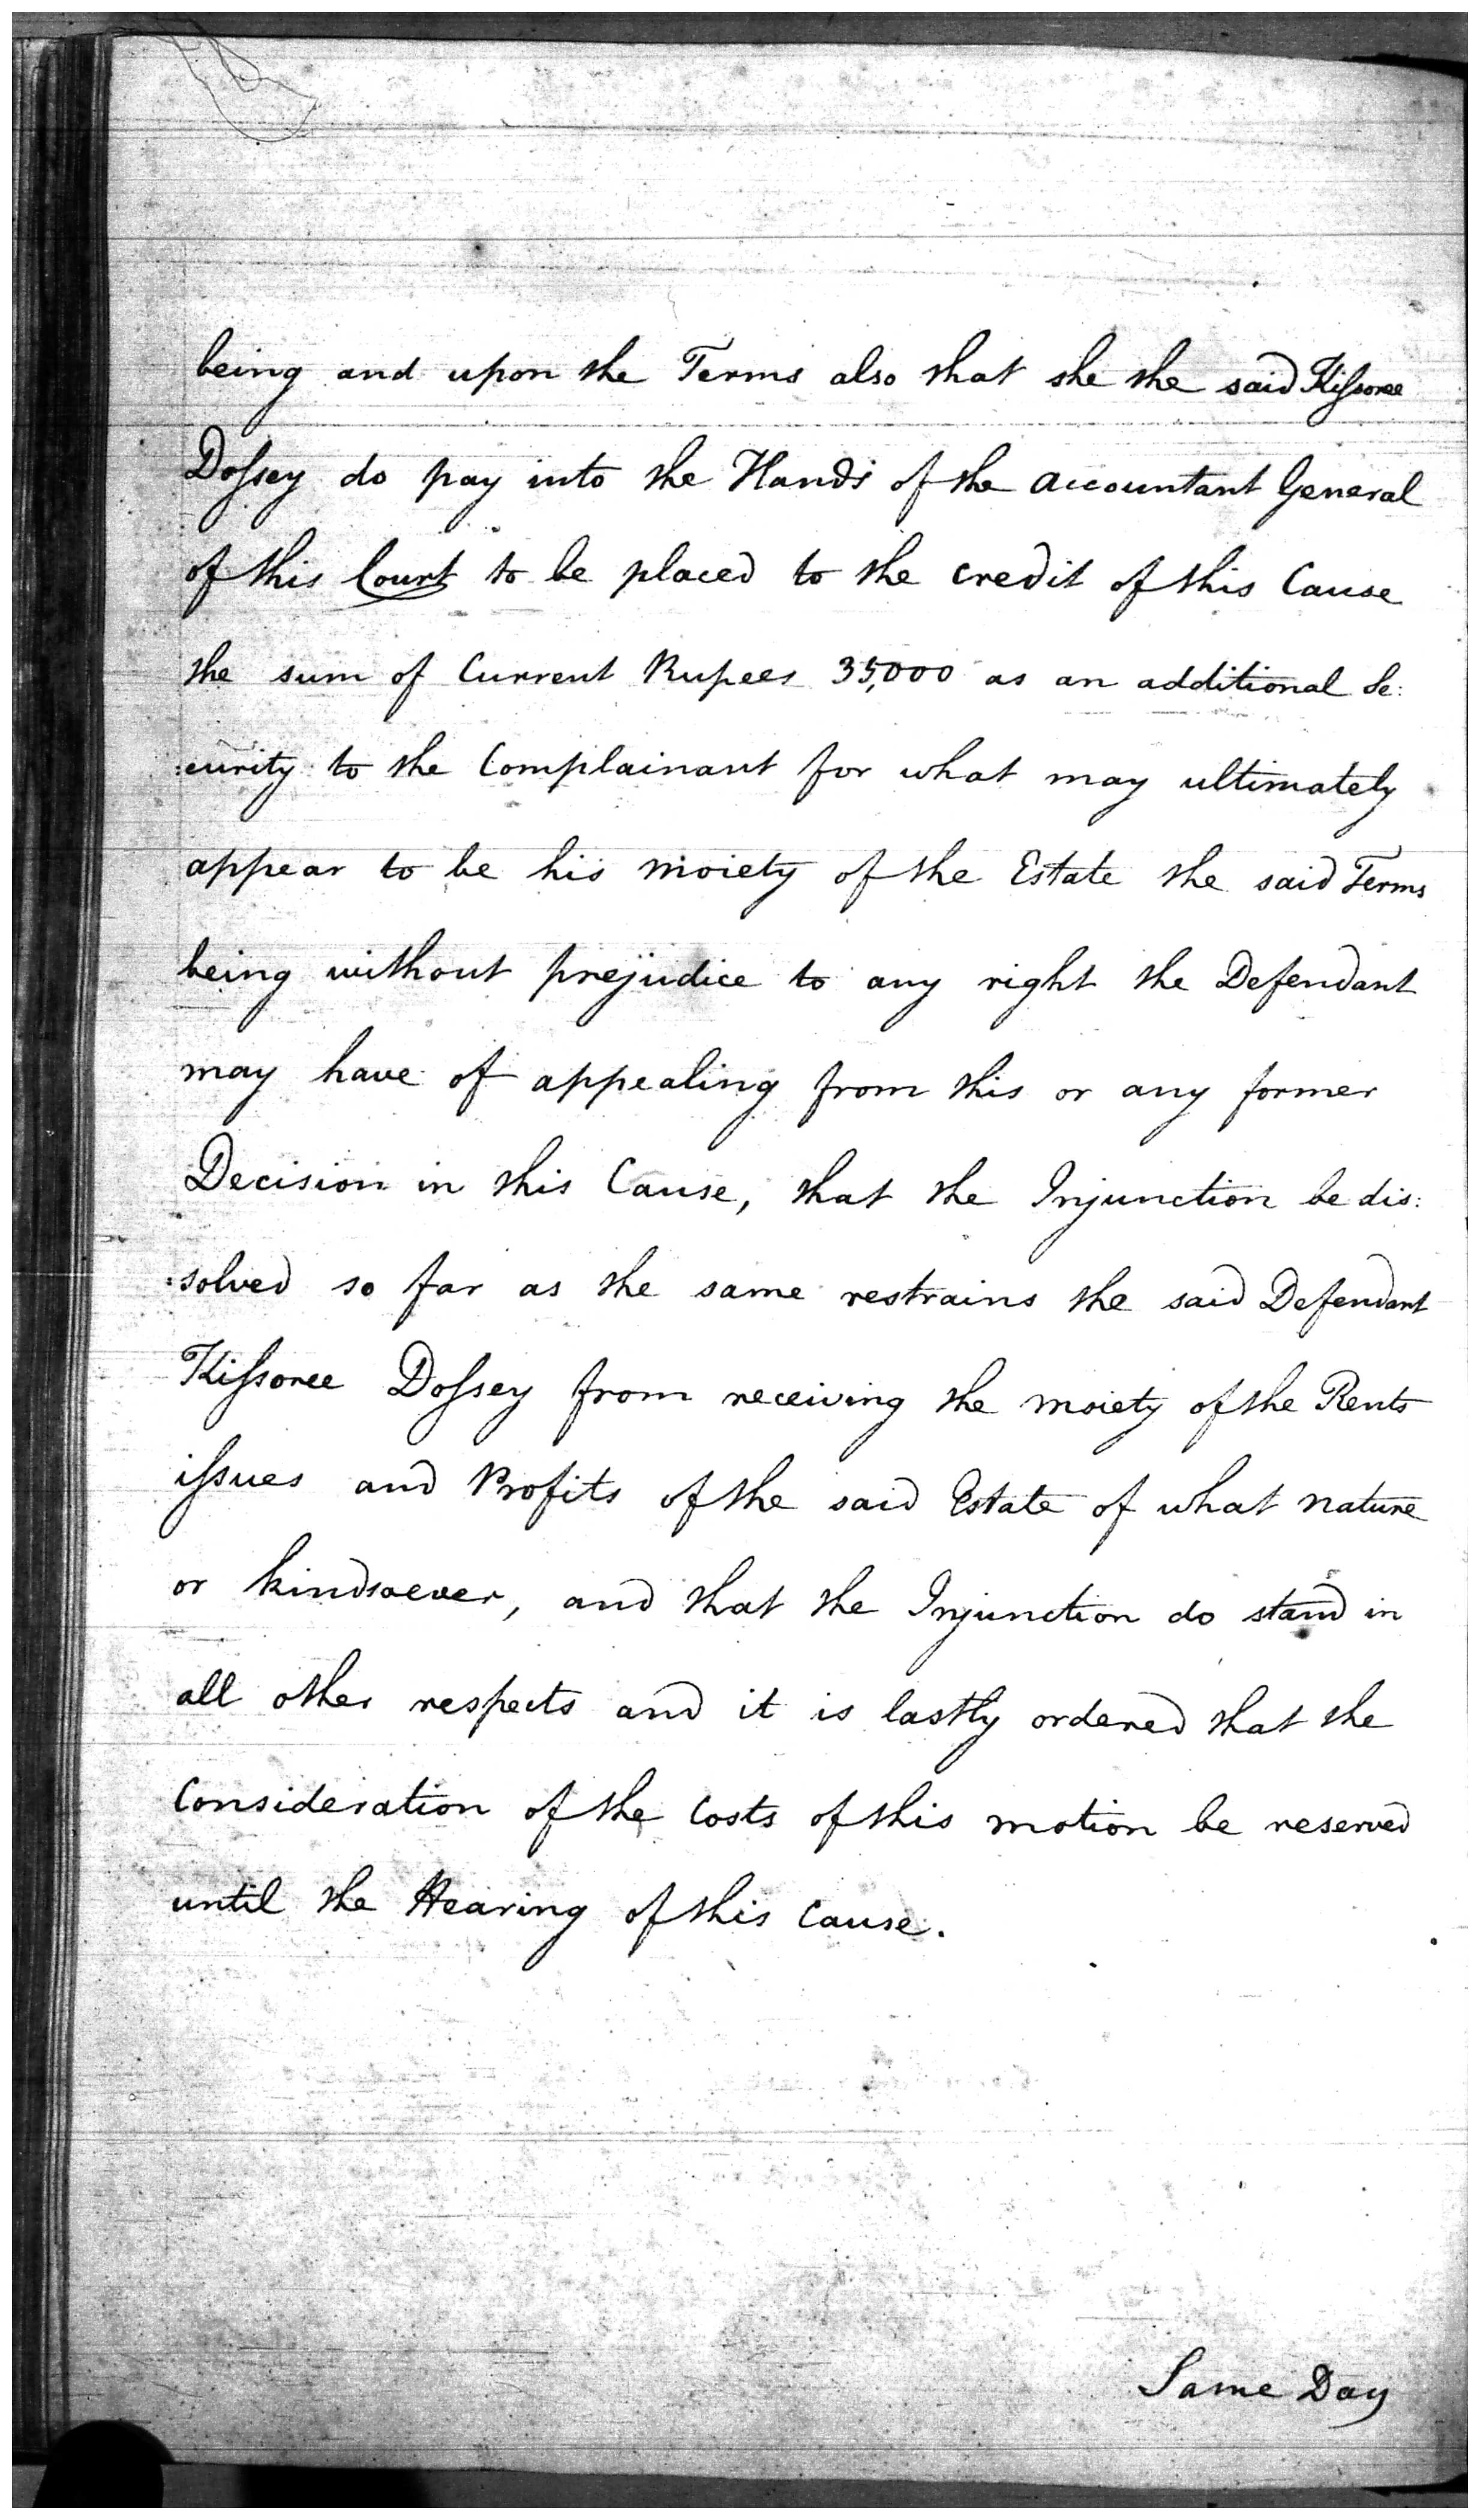 being and upon the Terms also that she the said Kiſsoree
Doſsey do pay into the Hands of the Accountant General
of this Court to be placed to the credit of this Cause
the sum of Current Rupees 35,000 as an additional Se:
:curity to the Complainant for what may ultimately
appear to be his moiety of the Estate the said Terms
being without prejudice to any right the Defendant
may have of appealing from this or any former
Decision in this Cause, that the Injunction be dis:
:solved so far as the same restrains the said Defendant
Kiſsoree Doſsey from receiving the moiety of the Rents
iſsues and Profits of the said Estate of what nature
or kindsoever, and that the Injunction do stand in
all other respects and it is lastly ordered that the
Consideration of the Costs of this motion be reserved
until the Hearing of this Cause.
Same Day